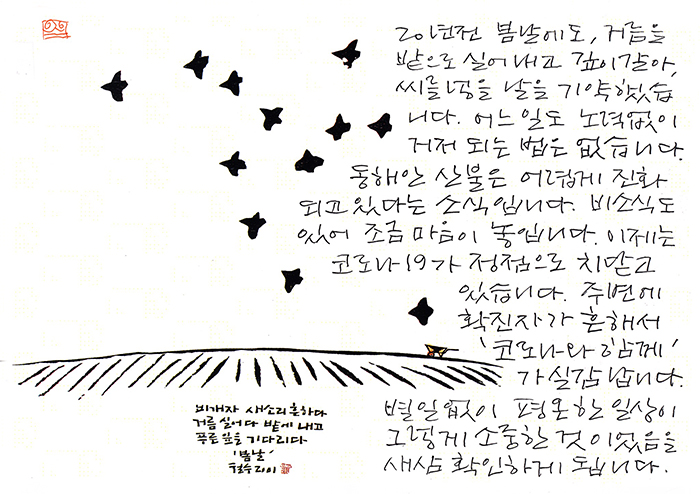 20년전 봄날에도, 거름을
밭으로 실어내고 깊이갈아,
씨를 넣을 날을 기약했습
니다. 어느일도 노력없이
거저 되는 법은 없습니다.
동해안 산불은 어렵게 진화
되고 있다는 소식입니다. 비소식도
있어 조금 마음이 놓입니다. 이제는
코로나19가 정점으로 치닫고
있습니다. 주변에
확진자가 흔해서
'코로나와 함께'
가 실감납니다.
별일없이 평온한 일상이
그렇게 소중한 것이었음을
새삼 확인하게 됩니다.
비개자 새소리흔하다
거름 실어다 밭에 내고
푸른 잎을 기다리다
'봄날'
철수 2001